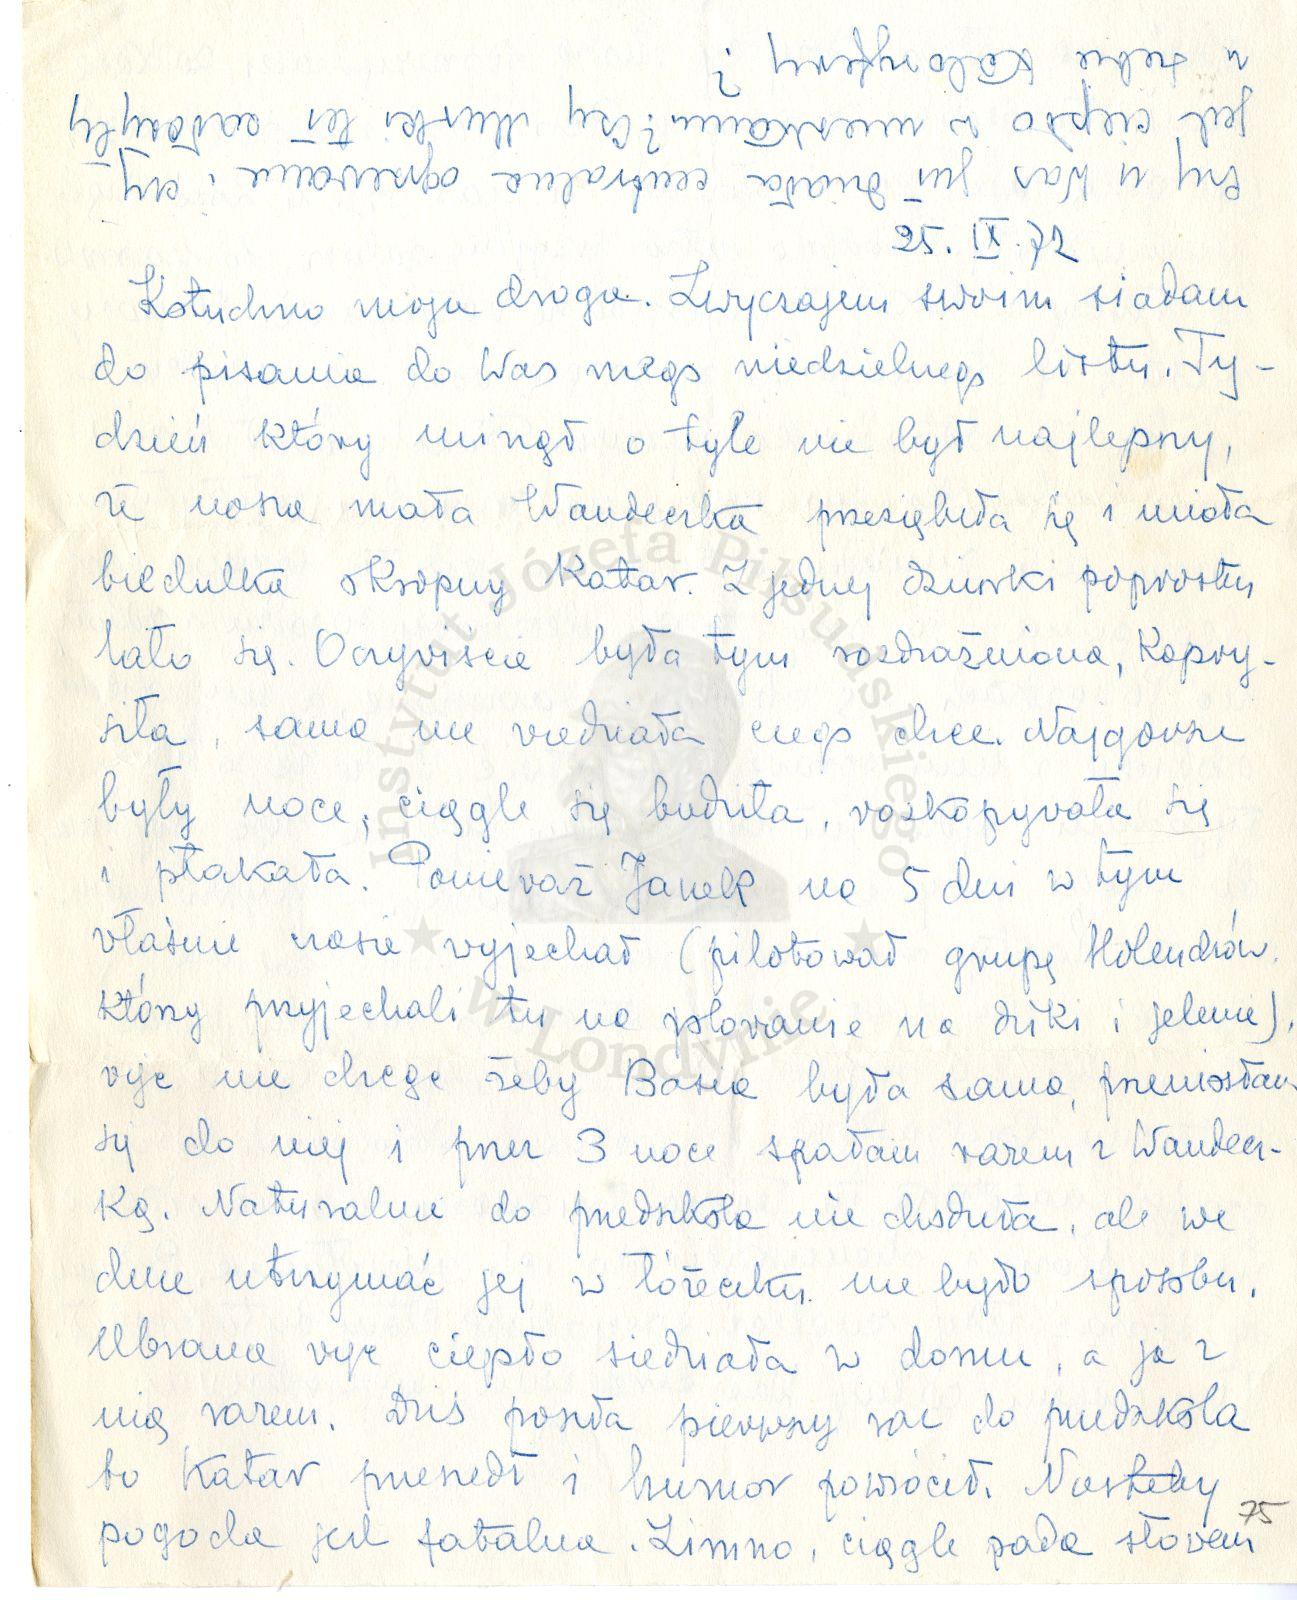 Czy u Was już działa centralne ogrzewanie i czy
jest ciepło w mieszkaniu? Czy Muszki też założyły
u siebie kaloryfery?
25. IX. 72
Kotuchno moja droga. Zwyczajem swoim siadam
do pisania do Was mego niedzielnego listu. Ty-
dzień który minął o tyle nie był najlepszy,
że nasza mała Wandeczka przeziębiła się i miała
biedulka okropny katar. Z jednej dziurki poprostu
lało się. Oczywiście była tym rozdrażniona, kapry-
siła, sama nie wiedziała czego chce. Najgorsze
były noce, ciągle się budziła, rozkopywała się
i płakała. Ponieważ Janek na 5 dni w tym
właśnie czasie wyjechał (pilotował grupę Holendrów,
którzy przyjechali tu na polowanie na dziki i jelenie),
więc nie chcąc żeby Basia była sama, przeniosłam
się do niej i przez 3 noce spałam razem z Wandecz-
ką. Naturalnie do przedszkola nie chodziła, ale we
dnie utrzymać jej w łóżeczku nie było sposobu.
Ubrana więc ciepło siedziała w domu, a ja z
nią razem. Dziś poszła pierwszy raz do przedszkola
bo katar przeszedł i humor powrócił. Niestety
pogoda jest fatalna. Zimno, ciągle pada słowem
75
Instytut Józefa Piłsudskiego
w Londynie